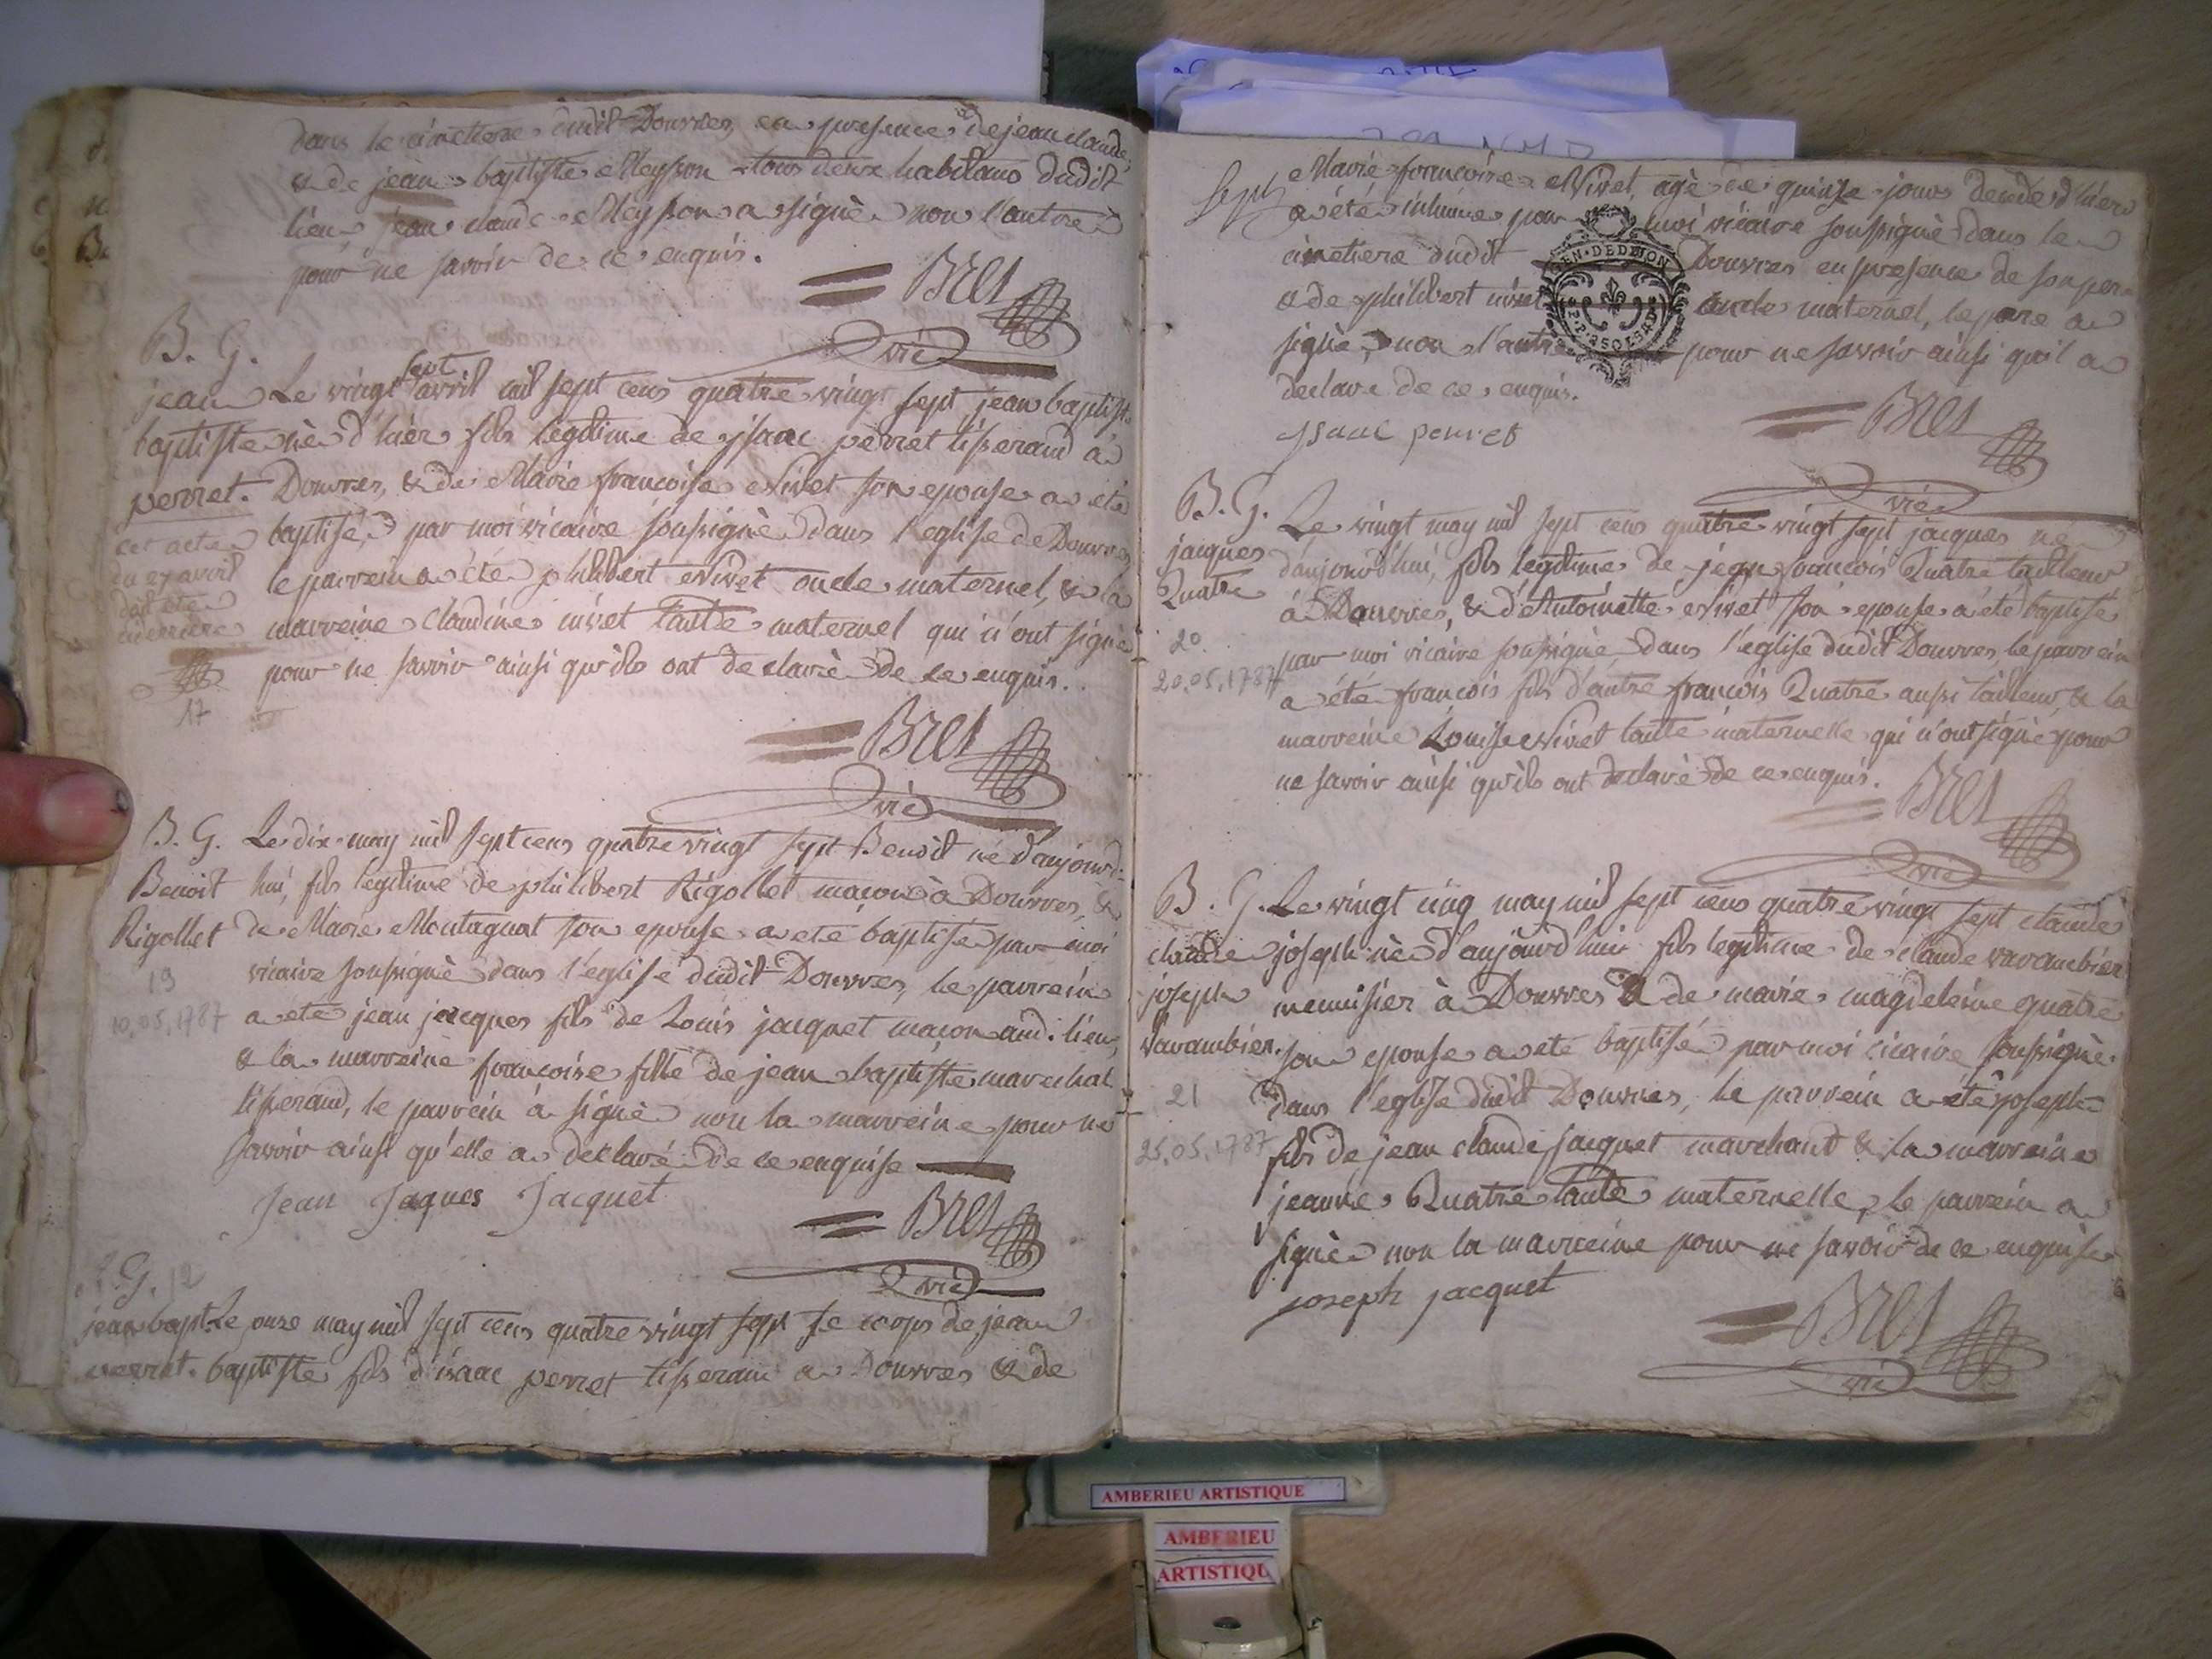 dans le cimetiere dudit Douvres, en presence de jean claude,
& de jean baptiste Meyson tous deux habitans dudit
lieu, jean claude Meyson a signè non l'autre
pour ne savoir de ce enquis.
= Bret
vic
B. G.
jean
baptiste
perret.
cet acte
du 27 avril
doit etre
17
Le vingt sept avril mil sept cens quatre vingt sept jean baptiste
nè d'hier fils legitime de ysaac perret tisserand à
Douvres, & de Marie francoise Nivet son epouse a eté
baptisé, par moi vicaire soussignè dans l'eglise de Douvres
le parrein a été philibert Nivet oncle maternel, & la
marreine claudine nivet tante maternel qui n'ont signè
pour ne savoir ainsi qu'ils ont declarè de ce enquis.
= Bret
vic
B. G.
Benoit
Rigollet
19
10.05.1787
Le dix may mil sept cens quatre vingt sept Benoit né d'aujourd-
hui, fils legitime de philibert Rigollet macon à Douvres, &
de Marie Montagnat son epouse a eté baptisé par moi
vicaire soussignè dans l'eglise dudit Douvres, le parrein
a eté jean jacques fils de Louis jacquet macon aud. lieu,
& la marreine francoise fille de jean baptiste marechal
tisserand, le parrein à signè non la marreine pour ne
savoir ainsi qu'elle a declaré de ce enquise
Jean Jaques Jacquet
= Bret
vic
G. 12
jean bapt.
perret.
Le onze may mil sept cens quatre vingt sept le corps de jean
baptiste fils d'isaac perret tisserand a Douvres & de
sept
Marie francoise Nivet, agè de quinze jours decedé d'hier
a été inhumé par moi vicaire soussignè dans le
cimetiere dudit Douvres en presence de son pere
& de philibert nivet oncle maternel, le pere a
signè, non l'autre pour ne savoir ainsi qu'il a
declare de ce enquis.
GEN. DE DIJON
ysaac perret
= Bret
vic
B. G.
jacques
Quatre
20
20.05.1787
Le vingt may mil sept cens quatre vingt sept jacques ne
d'aujourd'hui, fils legitime de jean francois Quatre tailleur
à Douvres, & d'Antoinette Nivet son epouse a été baptisé
par moi vicaire soussignè, dans l'eglise dudit Douvres, le parrein
a été francois fils d'autre francois Quatre aussi tailleur, & la
marreine Louise Nivet tante maternelle qui n'ont signè pour
ne savoir ainsi qu'ils ont declarè de ce enquis.
= Bret
vic
B. G.
claude
joseph
Varambier.
21
25.05.1787
Le vingt cinq may mil sept cens quatre vingt sept claude
joseph nè d'aujourd'hui fils legitime de claude varambier
menuisier à Douvres & de marie magdeleine quatre
son epouse a eté baptisé par moi vicaire soussignè
dans l'eglise dudit Douvres, le parrein a été joseph
fils de jean claude jacquet marchand & la marreine
jeanne Quatre tante maternelle, le parrein a
signè non la marreine pour ne savoir de ce enquise
joseph jacquet
= Bret
vic
AMBERIEU ARTISTIQUE
AMBERIEU
ARTISTIQU